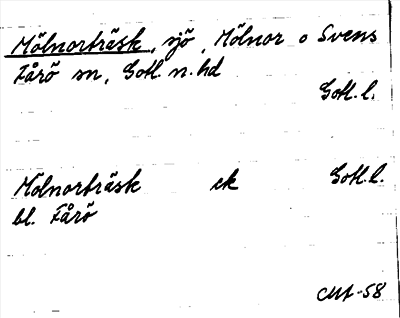 Mölnorträsk, sjö, Mölnor o Svens
Fårö sn, Gotl. n. hd
Gotl. l.
Mölnorträsk ek Gotl. l.
bl. Fårö
CMA-58